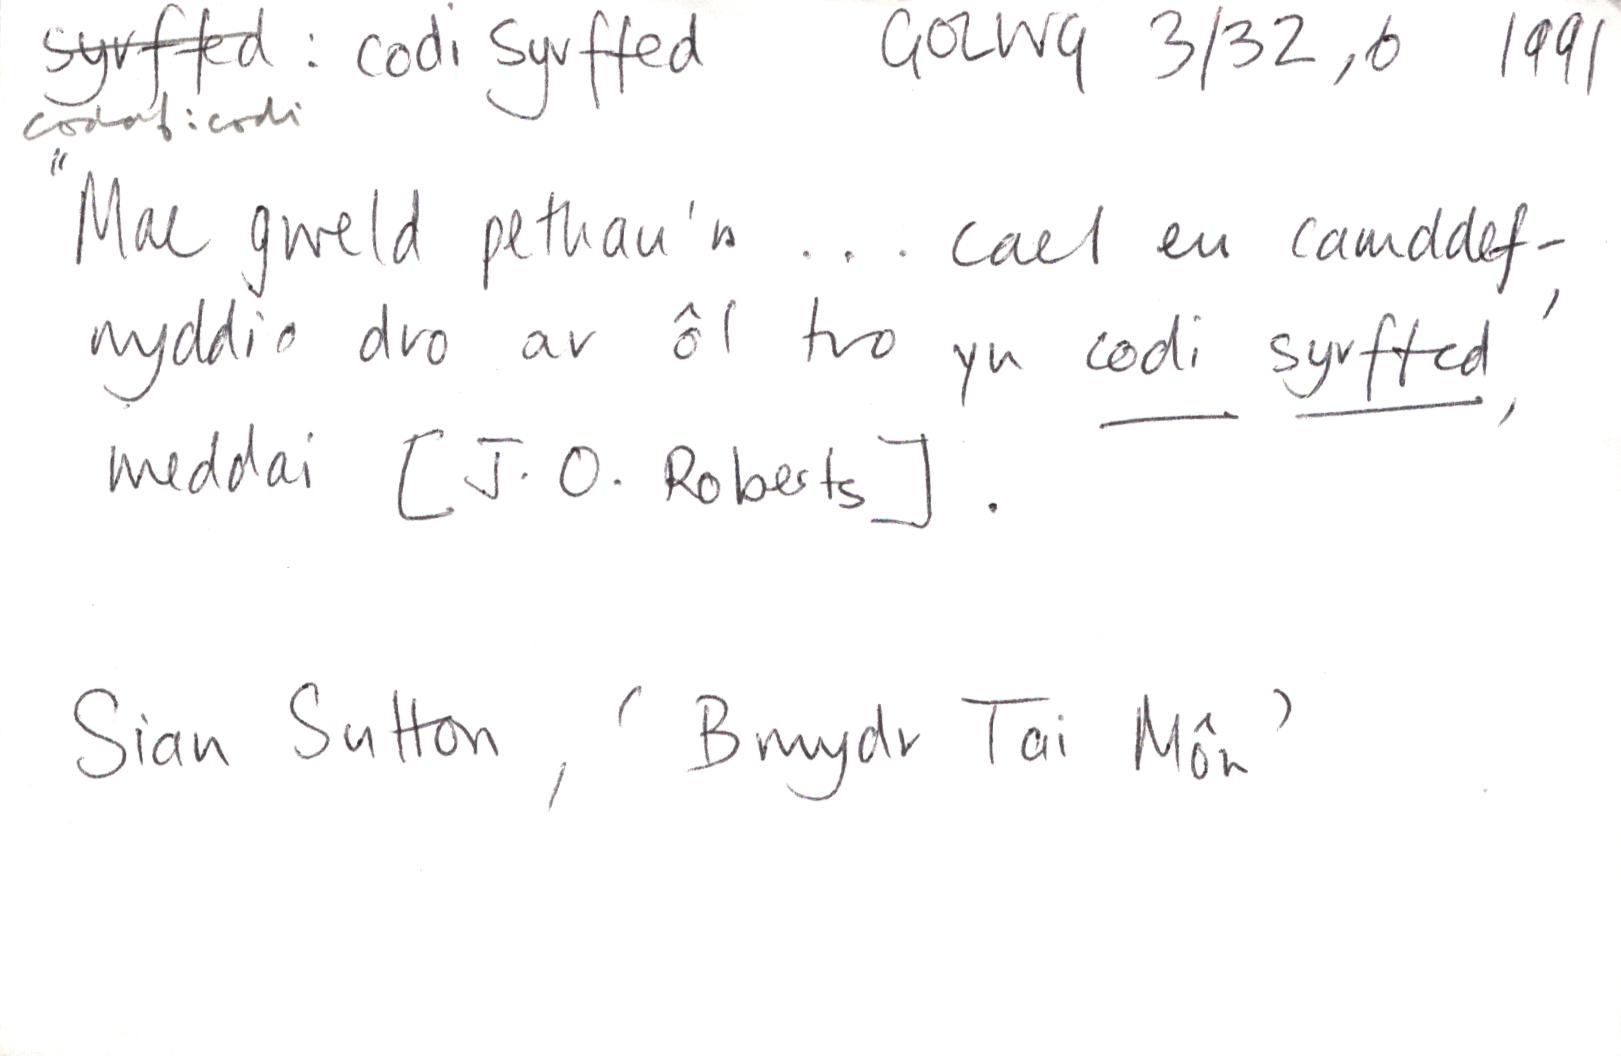 syrffed : codi syrffed GOLWG 3/32, 6 1991
codaf : codi
"Mae gweld pethau'n .... cael eu camddef-
nyddio dro ar ôl tro yn codi syrffed',
meddai [J. O. Roberts].
Sian Sutton, 'Brwydr Tai Môn'